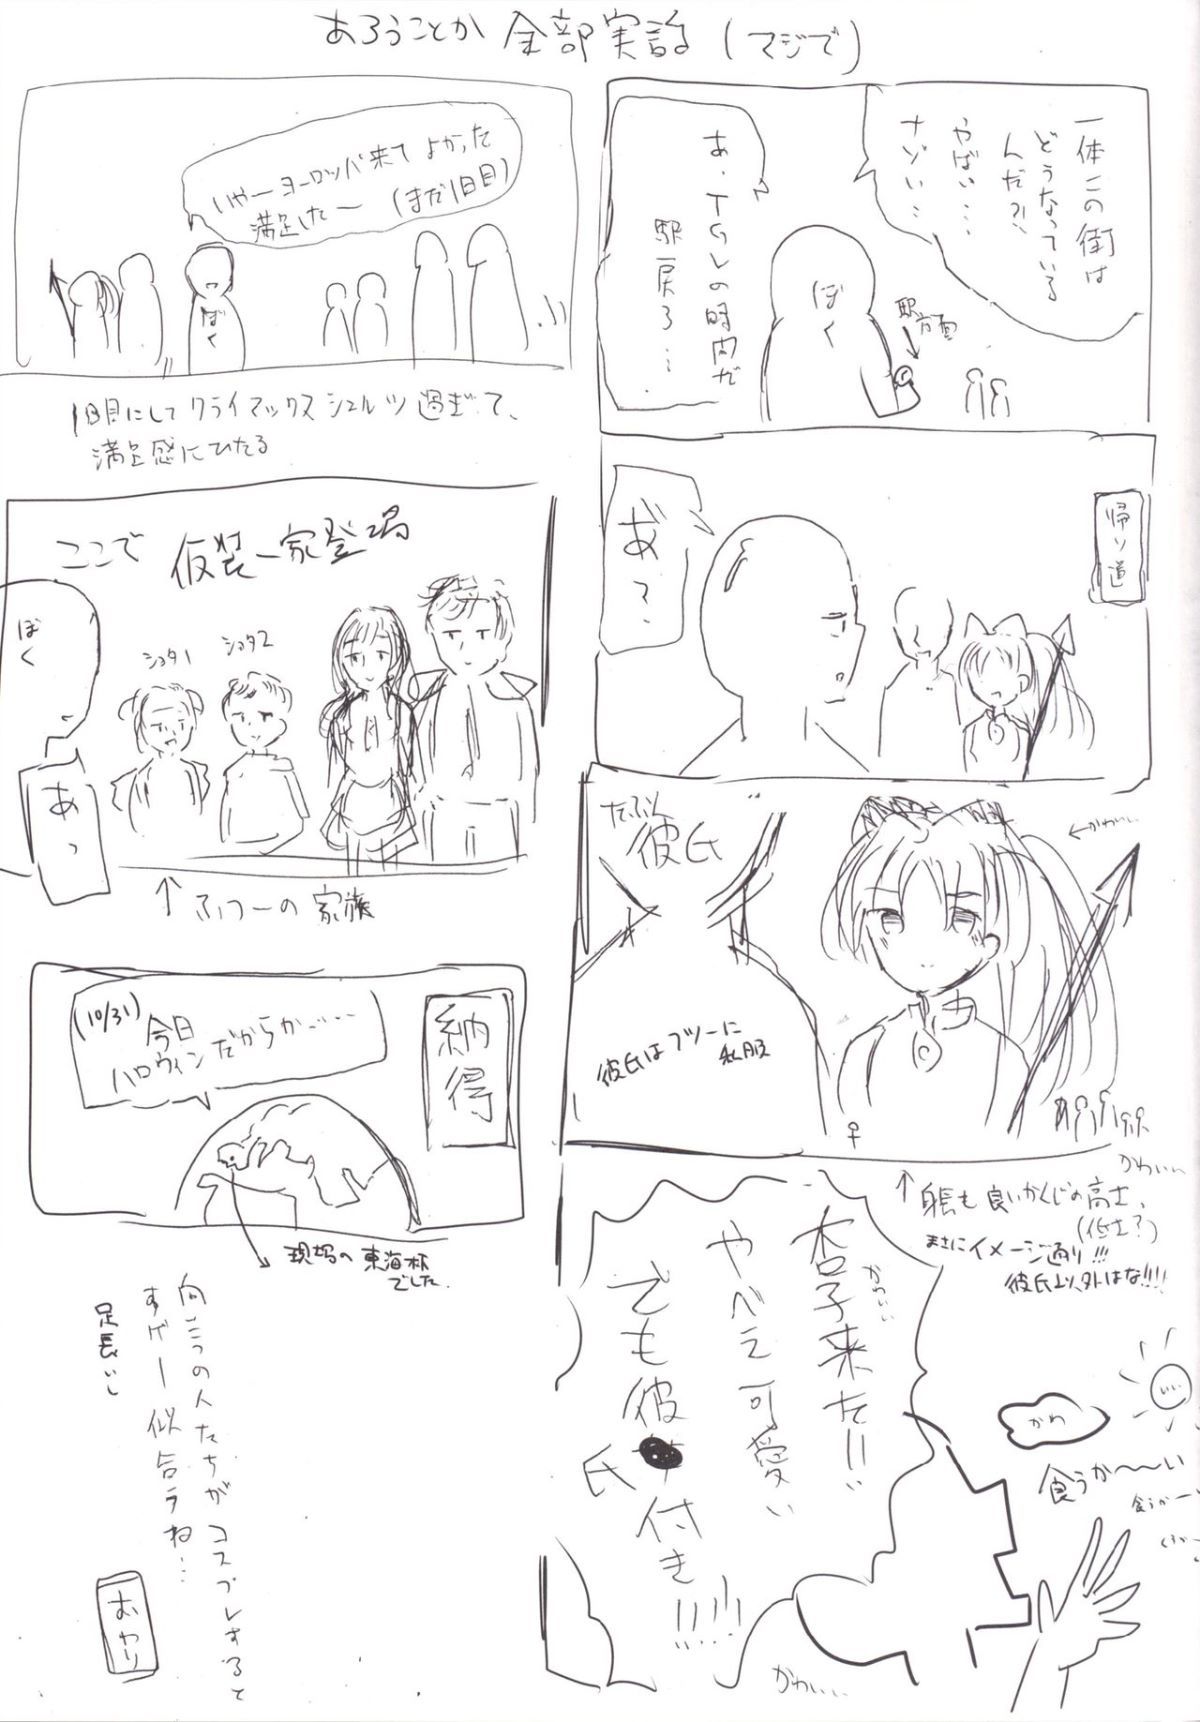 あろうことか 全部実話 (マジで)
一体この街は
どうなっている
んだ?!
やばい…
ナゾい…
あ、TGVの時間だ
駅戻ろ…
ぼく
駅方面
帰り道
あ?
たぶん
彼氏
←かわいい
彼氏はフツーに
私服
♀
かわいい
↑身長も良いかんじの高さ、
(低さ?)
まさにイメージ通り!!!
彼氏以外はな!!!!
杏子来た!!
かわいい
やべえ可愛い
でも彼氏付き!!!!
かわ
食うか〜〜い
食うかーい
かわいい
いやーヨーロッパ来てよかった
満足したー (まだ1日目)
ぼく
1日目にしてクライマックスシュルツ過ぎて、
満足感にひたる
ここで 仮装一家登場
ぼく
ショタ1
ショタ2
あっ
↑ ふつーの家族
納得
(10/31)
今日
ハロウィンだからか……
現場の東海林
でした
向こうの人たちがコスプレすると
すげー似合うね…
足長いし
おわり